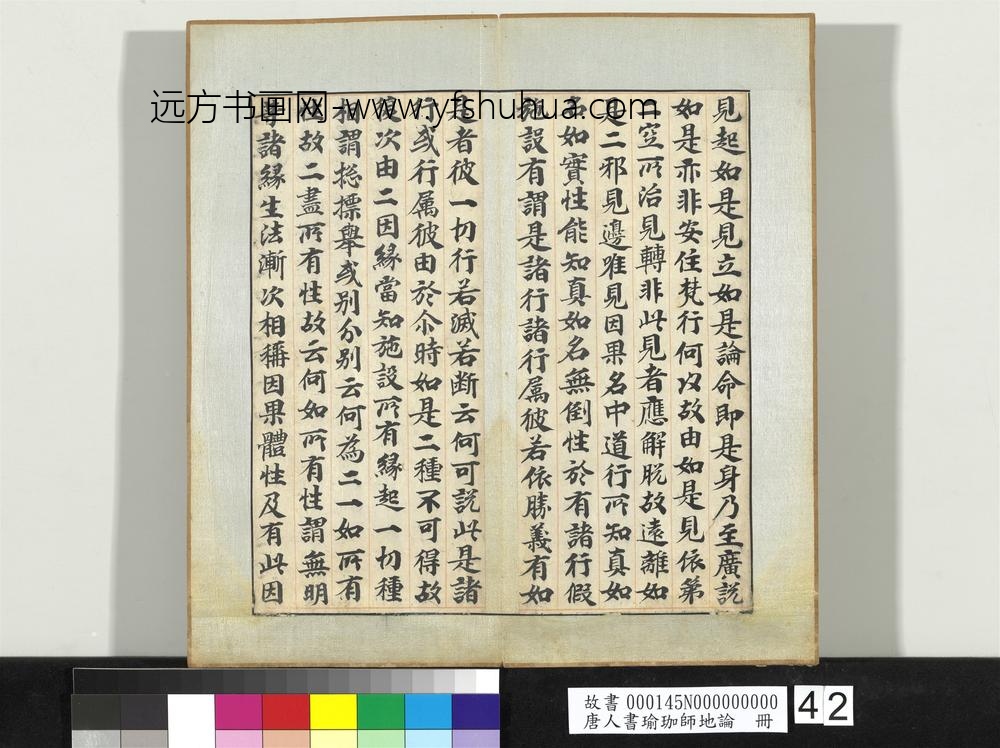 远方书画网-www.yfshuhua.com
見起如是見立如是論命即是身乃至廣說
如是亦非安住梵行何以故由如是見依第
空所治見轉非此見者應解脫故遠離如
是二邪見邊唯見因果名中道行所知真如
如實性能知真如名無倒性於有諸行假
施設有謂是諸行諸行属彼若依勝義有如
是者彼一切行若滅若断云何可說此是諸
行或行属彼由於尒時如是二種不可得故
次由二因緣當知施設所有緣起一切種
相謂揔摽舉或別分別云何為二一如所有
故二盡所有性故云何如所有性謂無明
等諸緣生法漸次相稱因果體性及有此因
故書 000145N000000000
唐人書瑜珈師地論 冊
42